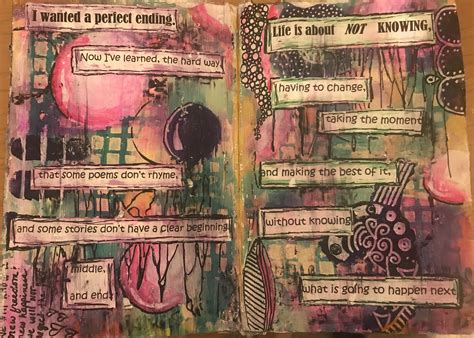 I wanted a perfect ending.
Now I've learned, the hard way,
that some poems don't rhyme,
and some stories don't have a clear beginning,
middle,
and end.
Life is about NOT KNOWING,
having to change,
taking the moment
and making the best of it,
without knowing
what is going to happen next.
new freedom
new happiness